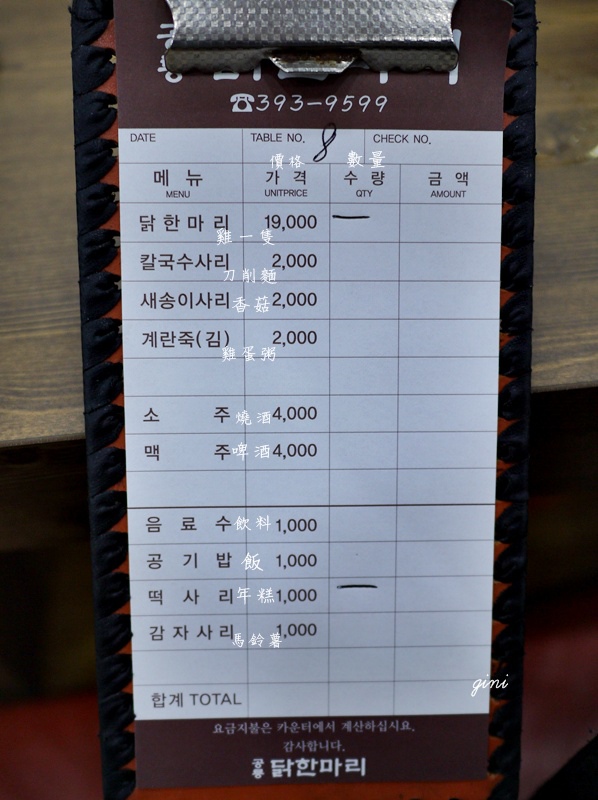 ☎393-9599
DATE TABLE NO. 8 CHECK NO.
價格 數量
메뉴 가격 수량 금액
MENU UNITPRICE QTY AMOUNT
닭한마리 19,000 一
雞一隻
칼국수사리 2,000
刀削麵
새송이사리 香菇 2,000
계란죽(김) 2,000
雞蛋粥
소주 燒酒 4,000
맥주 啤酒 4,000
음료수 飲料 1,000
공기밥 飯 1,000
떡사리 年糕 1,000 一
감자사리 1,000
馬鈴薯
gini
합계 TOTAL
요금지불은 카운터에서 계산하십시요.
감사합니다.
공릉 닭한마리